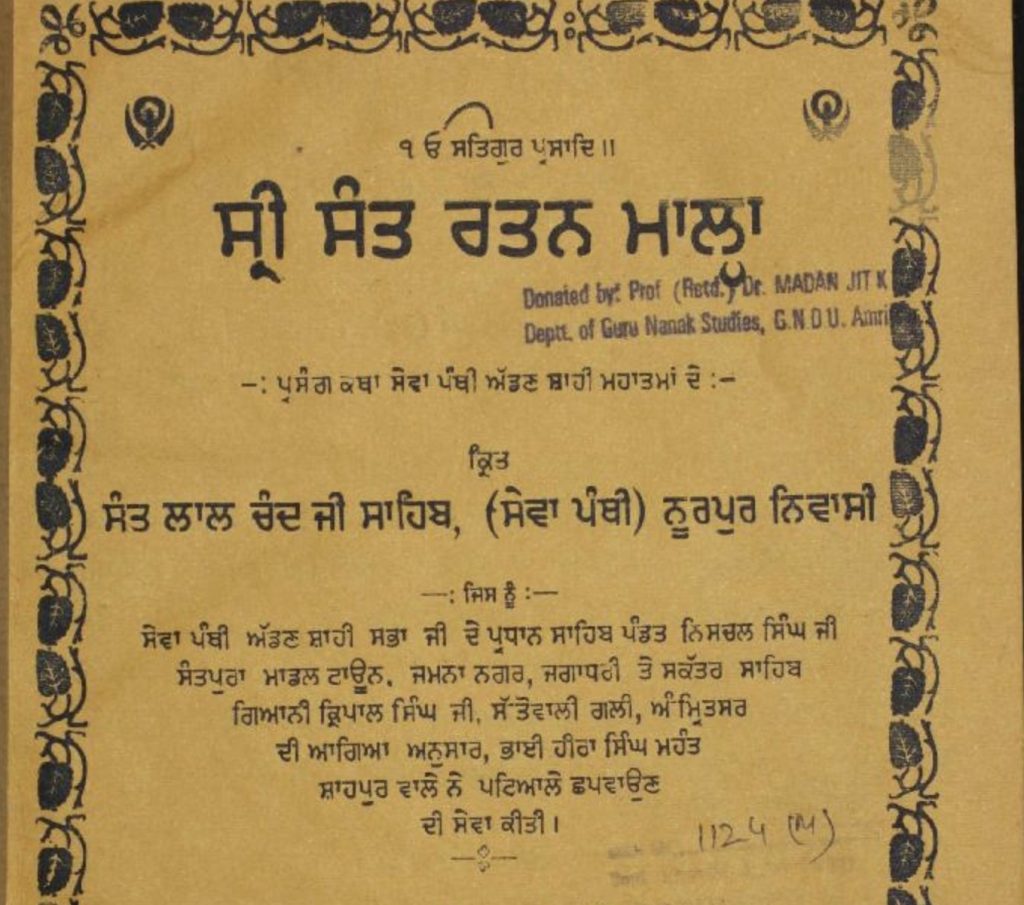 ੧ ਓ ਸਤਿਗੁਰ ਪ੍ਰਸਾਦਿ॥
ਸ੍ਰੀ ਸੰਤ ਰਤਨ ਮਾਲਾ
Donated by: Prof (Retd.) Dr. MADAN JIT K
Deptt. of Guru Nanak Studies, G.N.D.U. Amri
–: ਪ੍ਰਸੰਗ ਕਥਾ ਸੇਵਾ ਪੰਥੀ ਅੱਡਣ ਸ਼ਾਹੀ ਮਹਾਤਮਾਂ ਦੇ :–
ਕ੍ਰਿਤ
ਸੰਤ ਲਾਲ ਚੰਦ ਜੀ ਸਾਹਿਬ, (ਸੇਵਾ ਪੰਥੀ) ਨੂਰਪੁਰ ਨਿਵਾਸੀ
—: ਜਿਸ ਨੂੰ :—
ਸੇਵਾ ਪੰਥੀ ਅੱਡਣ ਸ਼ਾਹੀ ਸਭਾ ਜੀ ਦੇ ਪ੍ਰਧਾਨ ਸਾਹਿਬ ਪੰਡਤ ਨਿਸਚਲ ਸਿੰਘ ਜੀ
ਸੰਤਪੁਰਾ ਮਾਡਲ ਟਾਊਨ, ਜਮਨਾ ਨਗਰ, ਜਗਾਧਰੀ ਤੇ ਸਕੱਤਰ ਸਾਹਿਬ
ਗਿਆਨੀ ਕ੍ਰਿਪਾਲ ਸਿੰਘ ਜੀ, ਸੱਤੋਵਾਲੀ ਗਲੀ, ਅੰਮ੍ਰਿਤਸਰ
ਦੀ ਆਗਿਆ ਅਨੁਸਾਰ, ਭਾਈ ਹੀਰਾ ਸਿੰਘ ਮਹੰਤ
ਸ਼ਾਹਪੁਰ ਵਾਲੇ ਨੇ ਪਟਿਆਲੇ ਛਪਵਾਉਣ
ਦੀ ਸੇਵਾ ਕੀਤੀ।
1124 (M)